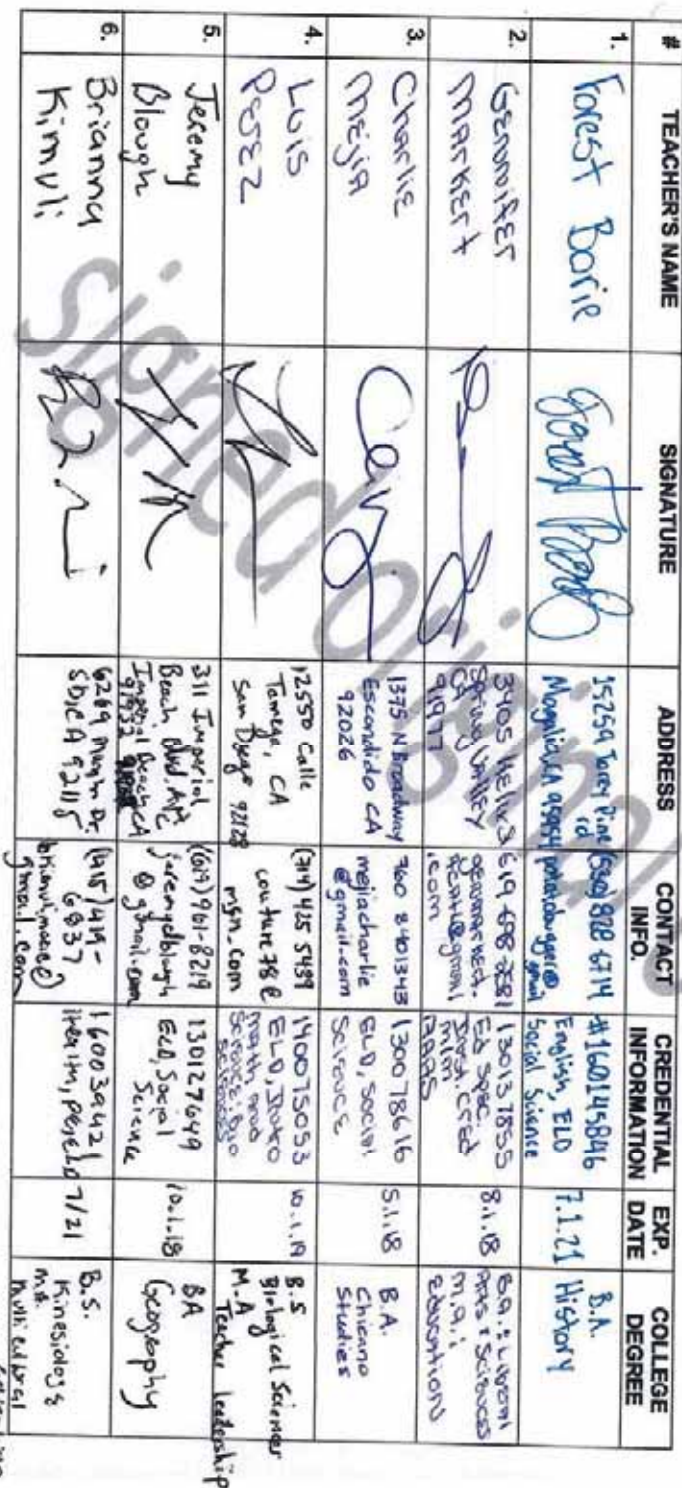 # TEACHER'S NAME SIGNATURE ADDRESS CONTACT INFO. CREDENTIAL INFORMATION EXP. DATE COLLEGE DEGREE
1.
Forest Borie
15259 Torey Pine rd
Magalia CA 95954
(530) 828 6714
#160145846
English, ELD
Social Science
7.1.21
B.A.
History
2.
Gennifer
Markert
3405 Helix
Spring Valley
CA
91977
.com
130137855
Ed Spec.
8.1.18
B.A.: Liberal
Arts & Sciences
M.A.:
Education
3.
Charlie
Mejia
1375 N Broadway
Escondido CA
92026
760 8401343
mejiacharlie
@gmail.com
130078616
ELD, Social
Science
5.1.18
B.A.
Chicano
Studies
4.
Luis
Perez
12550 Calle
Tamega, CA
San Diego 92128
(714) 425 5439
couture78@
msn.com
140075053
ELD, Intro
math and
Science: Bio
Sciences
10.1.19
B.S
Biological Sciences
M.A
Teacher leadership
5.
Jeremy
Blough
311 Imperial
Beach Blvd. Apt C
Imperial Beach CA
91932
(619) 961-8219
jeremydblough
@gmail.com
130127649
ELD, Social
Science
10.1.18
BA
Geography
6.
Brianna
Kimuli
SD, CA 92115
(415) 419-
6837
gmail.com
160039421
7/21
B.S.
Kinesiology
Multicultural
signed original